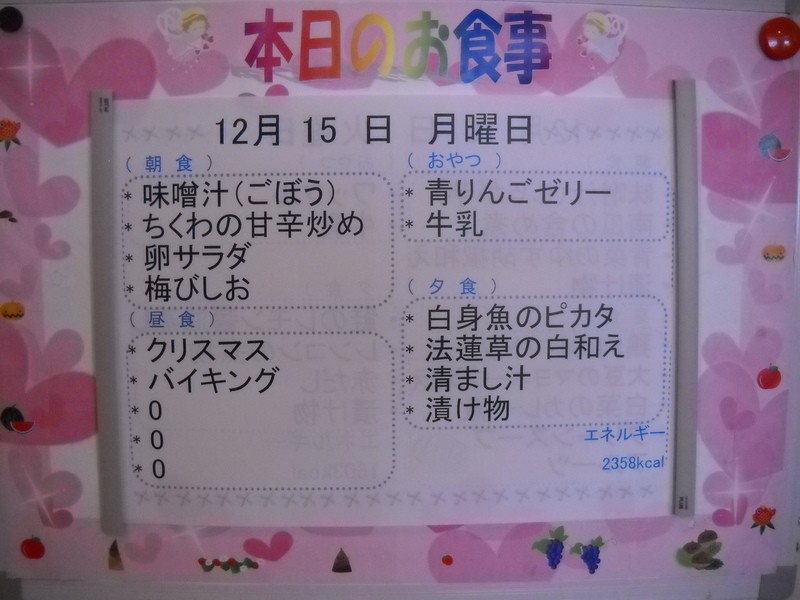 本日のお食事
12月 15 日 月曜日
( 朝 食 )
* 味噌汁(ごぼう)
* ちくわの甘辛炒め
* 卵サラダ
* 梅びしお
( 昼 食 )
* クリスマス
* バイキング
* 0
* 0
* 0
( おやつ )
* 青りんごゼリー
* 牛乳
( 夕 食 )
* 白身魚のピカタ
* 法蓮草の白和え
* 清まし汁
* 漬け物
エネルギー
2358kcal